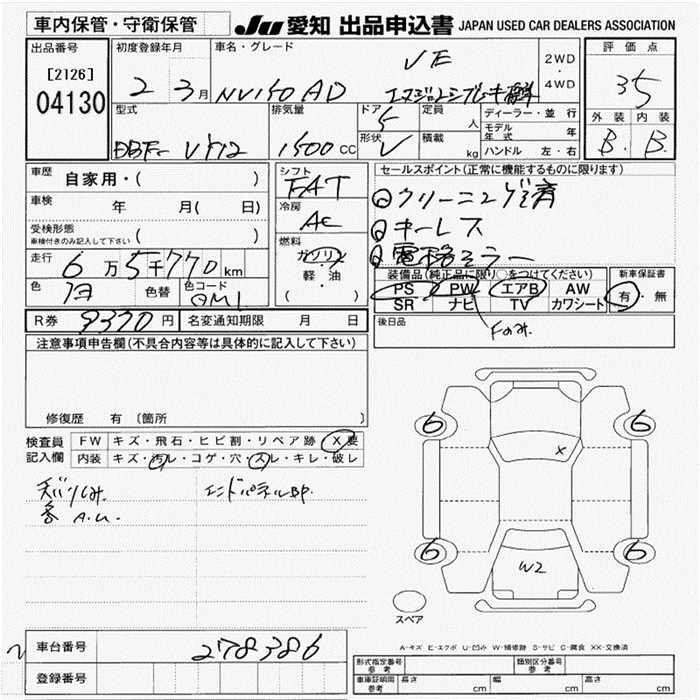 車内保管・守衛保管
JU 愛知 出品申込書 JAPAN USED CAR DEALERS ASSOCIATION
出品番号
[2126]
04130
初度登録年月
2 3月
車名・グレード
VE
NV150 AD
2WD
・
4WD
評価点
3.5
外装 内装
B. B.
型式
DBF- VY12
排気量
1500 CC
ドア
5
形状
V
定員
人
積載
kg
ディーラー・並行
モデル年式 年
ハンドル 左・右
車歴 自家用・( )
車検 年 月( 日)
受検形態
車検付きのみ記入して下さい ( )
走行 6万5千770km
色 色替 色コード
R券 9370円 名変通知期限 月 日
シフト
FAT
冷房
AC
燃料
ガソリン
軽・油
( )
セールスポイント(正常に機能するものに限ります)
①クリーニング済
②キーレス
③電格ミラー
装備品(純正品に限り○をつけてください)
PS PW エアB AW
SR ナビ TV カワシート
Fのみ
新車保証書
有・無
後日品
注意事項申告欄(不具合内容等は具体的に記入して下さい)
修復歴 有〔箇所 〕
検査員
記入欄
FW キズ・飛石・ヒビ割・リペア跡 X要
内装 キズ・汚レ・コゲ・穴・スレ・キレ・破レ
天バリしみ エンドパネルBP.
各 A.U.
6 6
X
6 6
W2
スペア
A-キズ E-エクボ U-凹み W-補修跡 S-サビ C-腐食 XX-交換済
車台番号 278386
登録番号
形式指定番号 参考 類別区分番号 参考
車庫証明用 参考 長さ cm 幅 cm 高さ cm